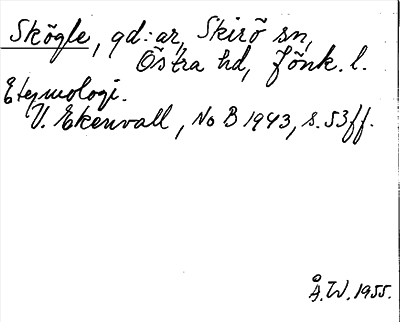 Skögle, gd:ar, Skirö sn,
Östra hd, Jönk. l.
Etymologi.
V. Ekenvall, NoB 1943, s. 53ff.
Å.W. 1955.